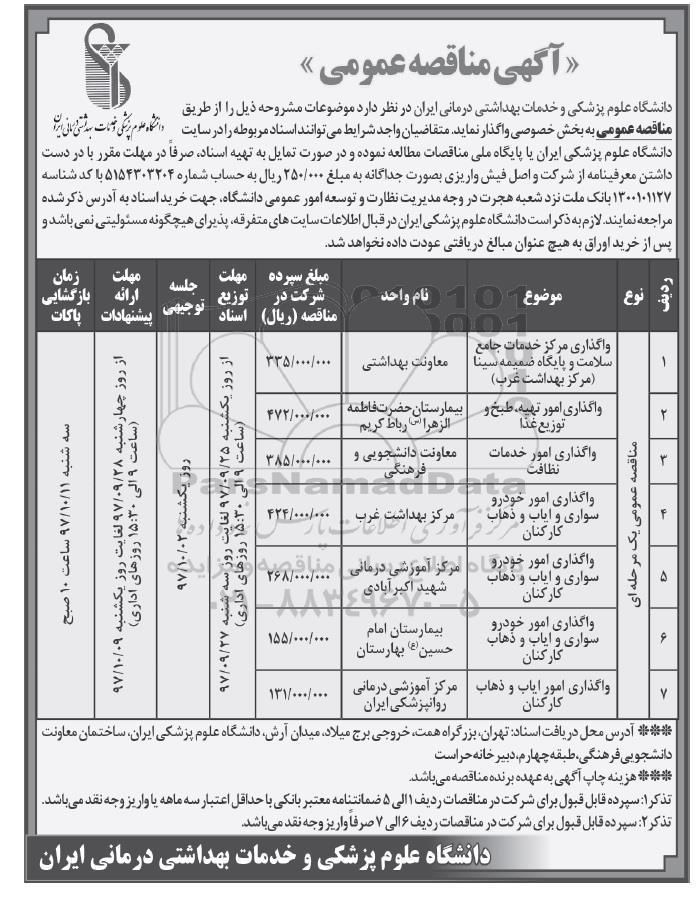 «آگهی مناقصه عمومی»
دانشگاه علوم پزشکی و خدمات بهداشتی درمانی ایران
دانشگاه علوم پزشکی و خدمات بهداشتی درمانی ایران در نظر دارد موضوعات مشروحه ذیل را از طریق
مناقصه عمومی به بخش خصوصی واگذار نماید. متقاضیان واجد شرایط می‌توانند اسناد مربوطه را در سایت
دانشگاه علوم پزشکی ایران یا پایگاه ملی مناقصات مطالعه نموده و در صورت تمایل به تهیه اسناد، صرفاً در مهلت مقرر با در دست
داشتن معرفینامه از شرکت و اصل فیش واریزی بصورت جداگانه به مبلغ ۲۵۰/۰۰۰ ریال به حساب شماره ۵۱۵۴۳۰۳۲۰۴ با کد شناسه
۱۳۰۰۱۰۱۱۲۷ بانک ملت نزد شعبه هجرت در وجه مدیریت نظارت و توسعه امور عمومی دانشگاه، جهت خرید اسناد به آدرس ذکر شده
مراجعه نمایند. لازم به ذکر است دانشگاه علوم پزشکی ایران در قبال اطلاعات سایت های متفرقه، پذیرای هیچگونه مسئولیتی نمی باشد و
پس از خرید اوراق به هیچ عنوان مبالغ دریافتی عودت داده نخواهد شد.
ردیف نوع موضوع نام واحد مبلغ سپرده شرکت در مناقصه (ریال) مهلت توزیع اسناد جلسه توجیهی مهلت ارائه پیشنهادات زمان بازگشایی پاکات
۱ واگذاری مرکز خدمات جامع سلامت و پایگاه ضمیمه سینا (مرکز بهداشت غرب) معاونت بهداشتی ۳۳۵/۰۰۰/۰۰۰
۲ واگذاری امور تهیه، طبخ و توزیع غذا بیمارستان حضرت فاطمه الزهرا (س) رباط کریم ۴۷۲/۰۰۰/۰۰۰
۳ واگذاری امور خدمات نظافت معاونت دانشجویی و فرهنگی ۳۸۵/۰۰۰/۰۰۰
۴ واگذاری امور خودرو سواری و ایاب و ذهاب کارکنان مرکز بهداشت غرب ۴۲۴/۰۰۰/۰۰۰
۵ واگذاری امور خودرو سواری و ایاب و ذهاب کارکنان مرکز آموزشی درمانی شهید اکبرآبادی ۲۶۸/۰۰۰/۰۰۰
۶ واگذاری امور خودرو سواری و ایاب و ذهاب کارکنان بیمارستان امام حسین (ع) بهارستان ۱۵۵/۰۰۰/۰۰۰
۷ واگذاری امور ایاب و ذهاب کارکنان مرکز آموزشی درمانی روانپزشکی ایران ۱۳۱/۰۰۰/۰۰۰
مناقصه عمومی یک مرحله ای
از روز یکشنبه ۹۷/۰۹/۲۵ لغایت روز سه شنبه ۹۷/۰۹/۲۷
(ساعت ۹ الی ۱۵:۳۰ روزهای اداری)
روز یکشنبه ۹۷/۱۰/۰۲
از روز چهارشنبه ۹۷/۰۹/۲۸ لغایت روز یکشنبه ۹۷/۱۰/۰۹
(ساعت ۹ الی ۱۵:۳۰ روزهای اداری)
سه شنبه ۹۷/۱۰/۱۱ ساعت ۱۰ صبح
ParsNamadData
۰۲۱-۸۸۳۴۹۶۷۰-۵
❊❊❊ آدرس محل دریافت اسناد: تهران، بزرگراه همت، خروجی برج میلاد، میدان آرش، دانشگاه علوم پزشکی ایران، ساختمان معاونت
دانشجویی فرهنگی، طبقه چهارم، دبیر خانه حراست
❊❊❊ هزینه چاپ آگهی به عهده برنده مناقصه می‌باشد.
تذکر۱: سپرده قابل قبول برای شرکت در مناقصات ردیف ۱ الی ۵ ضمانتنامه معتبر بانکی با حداقل اعتبار سه ماهه یا واریز وجه نقد می‌باشد.
تذکر۲: سپرده قابل قبول برای شرکت در مناقصات ردیف ۶ الی ۷ صرفاً واریز وجه نقد می‌باشد.
دانشگاه علوم پزشکی و خدمات بهداشتی درمانی ایران